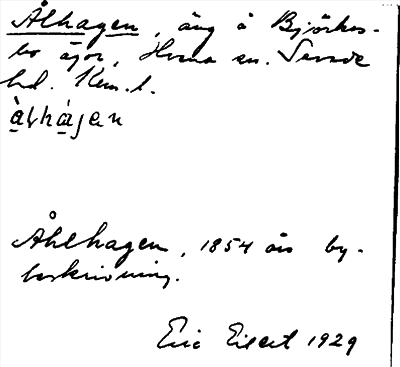 Ålhagen, äng å Björkes-
bo ägor, Hvena sn. Sevede
hd. Km. l.
àlhágen
Åhlhagen, 1854 års by-
beskrivning.
Eric Eilert 1929